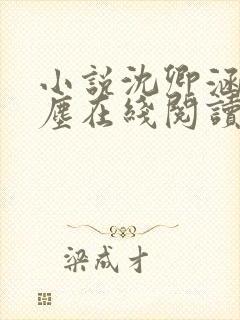 小説沈卿涵
塵在綫閱讀
梁成才